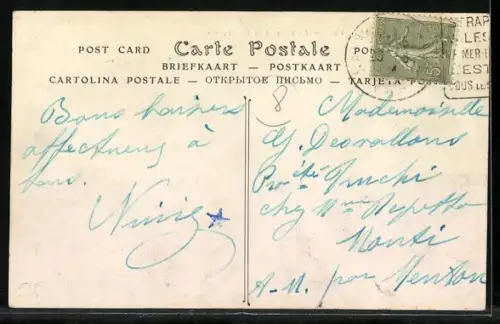 POST CARD Carte Postale PO
BRIEFKAART — POSTKAART
CARTOLINA POSTALE — ОТКРЫТОЕ ПИСЬМО — TARJETA POS
8
Bons baisers
affectueux à
tous.
Ninie
Mademoiselle
G. Desvallons
Pro iété
chez Mme Repetto
Monti
A-M. par Menton
RAP
LES
MER-
EST
OUS LES
15